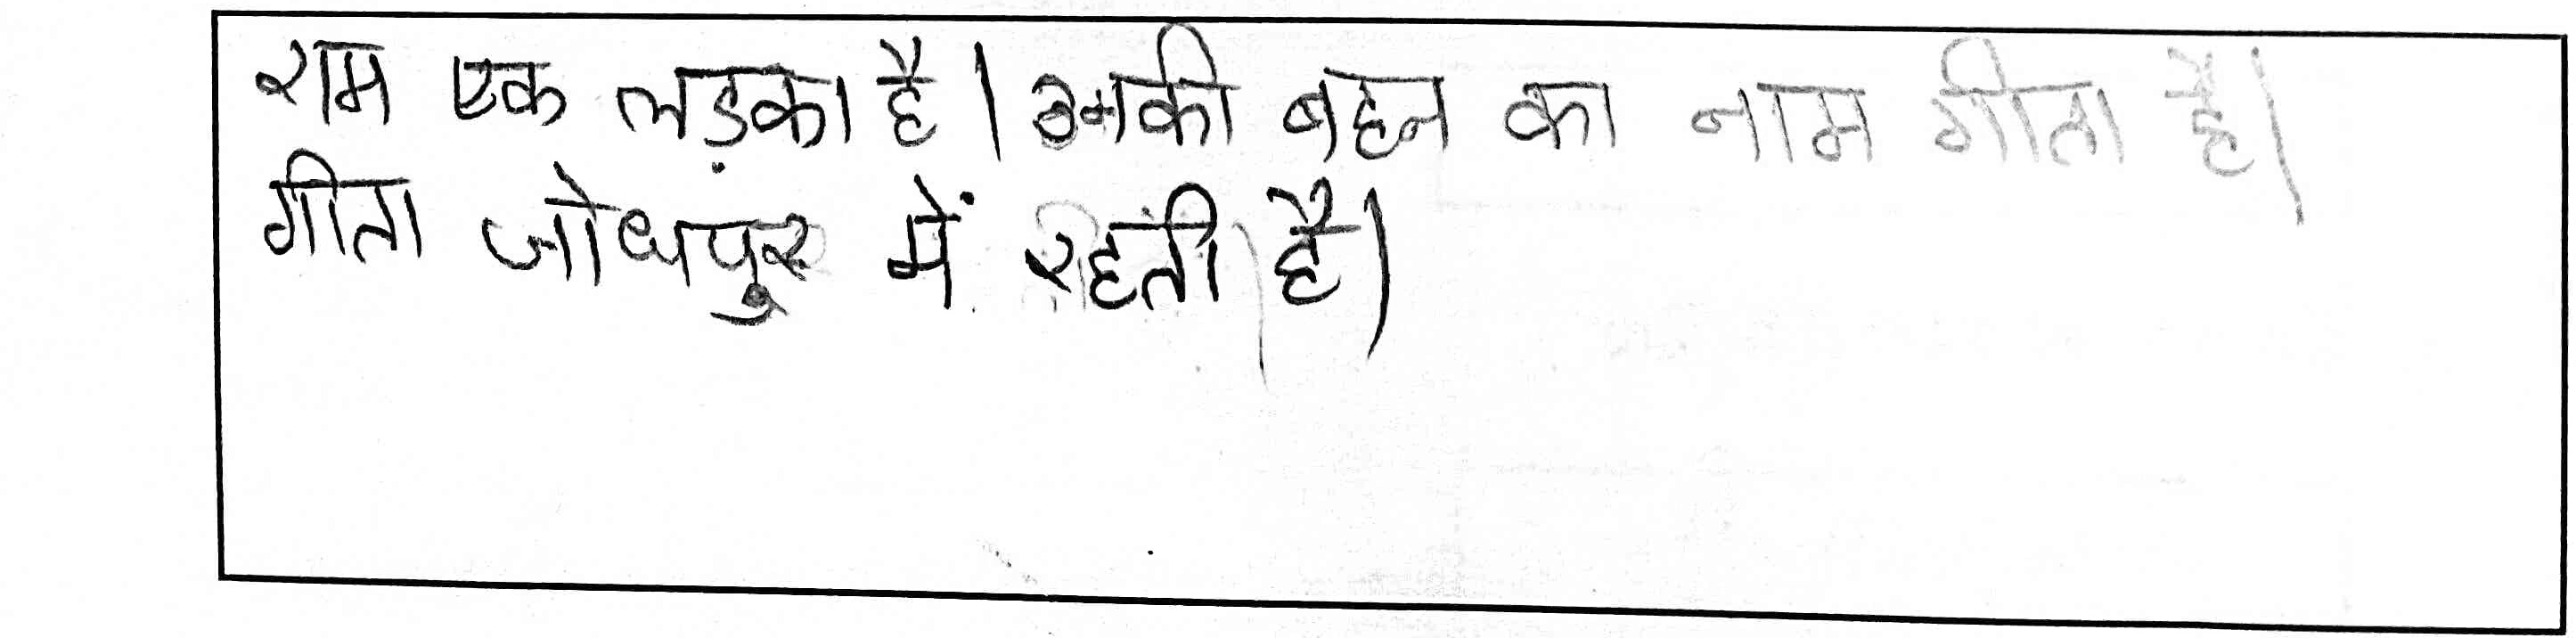 राम एक लड़का है। उसकी बहन का नाम गीता है।
गीता जोधपुर में रहती है।